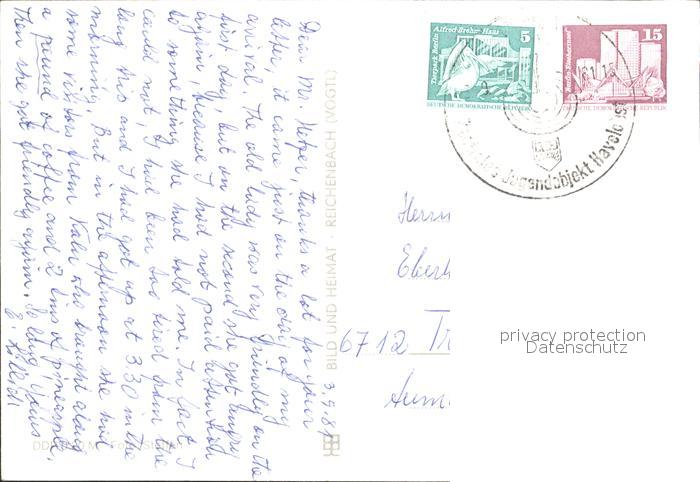 Dear Mr. Hetzer, thanks a lot for your
letter, it came just on the day of my
arrival. The old lady was very friendly on the
first day, but on the second she got angry
again, because I had not paid attention
to something she had told me. In fact, I
could not. I had been too tired from the
long and I had got up at 3.30 in the
morning. But in the afternoon she had
some visitors from who brought along
a pound of coffee and 2 tins of pineapple.
Then she got friendly again. So long, Yours
E.
3.9.81
BILD UND HEIMAT · REICHENBACH (VOGTL)
Tierpark Berlin Alfred-Brehm-Haus 5
DEUTSCHE DEMOKRATISCHE REPUBLIK
Berlin-Fischerinsel 15
DEUTSCHE DEMOKRATISCHE REPUBLIK
Zentrales Jugendobjekt Havelobst
Herrn
Eberh
6712 Tr
privacy protection
Datenschutz